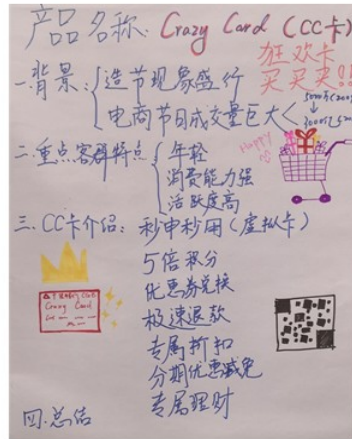 产品名称: Crazy Card (CC卡)
狂欢卡
买买买!!
一.背景: 造节现象盛行
电商节日成交量巨大
二.重点客群特点 年轻
消费能力强
活跃度高
Happy
三.CC卡介绍: 秒申秒用(虚拟卡)
5倍积分
优惠券兑换
极速退款
专属折扣
分期优惠减免
专属理财
Crazy Card
四.总结